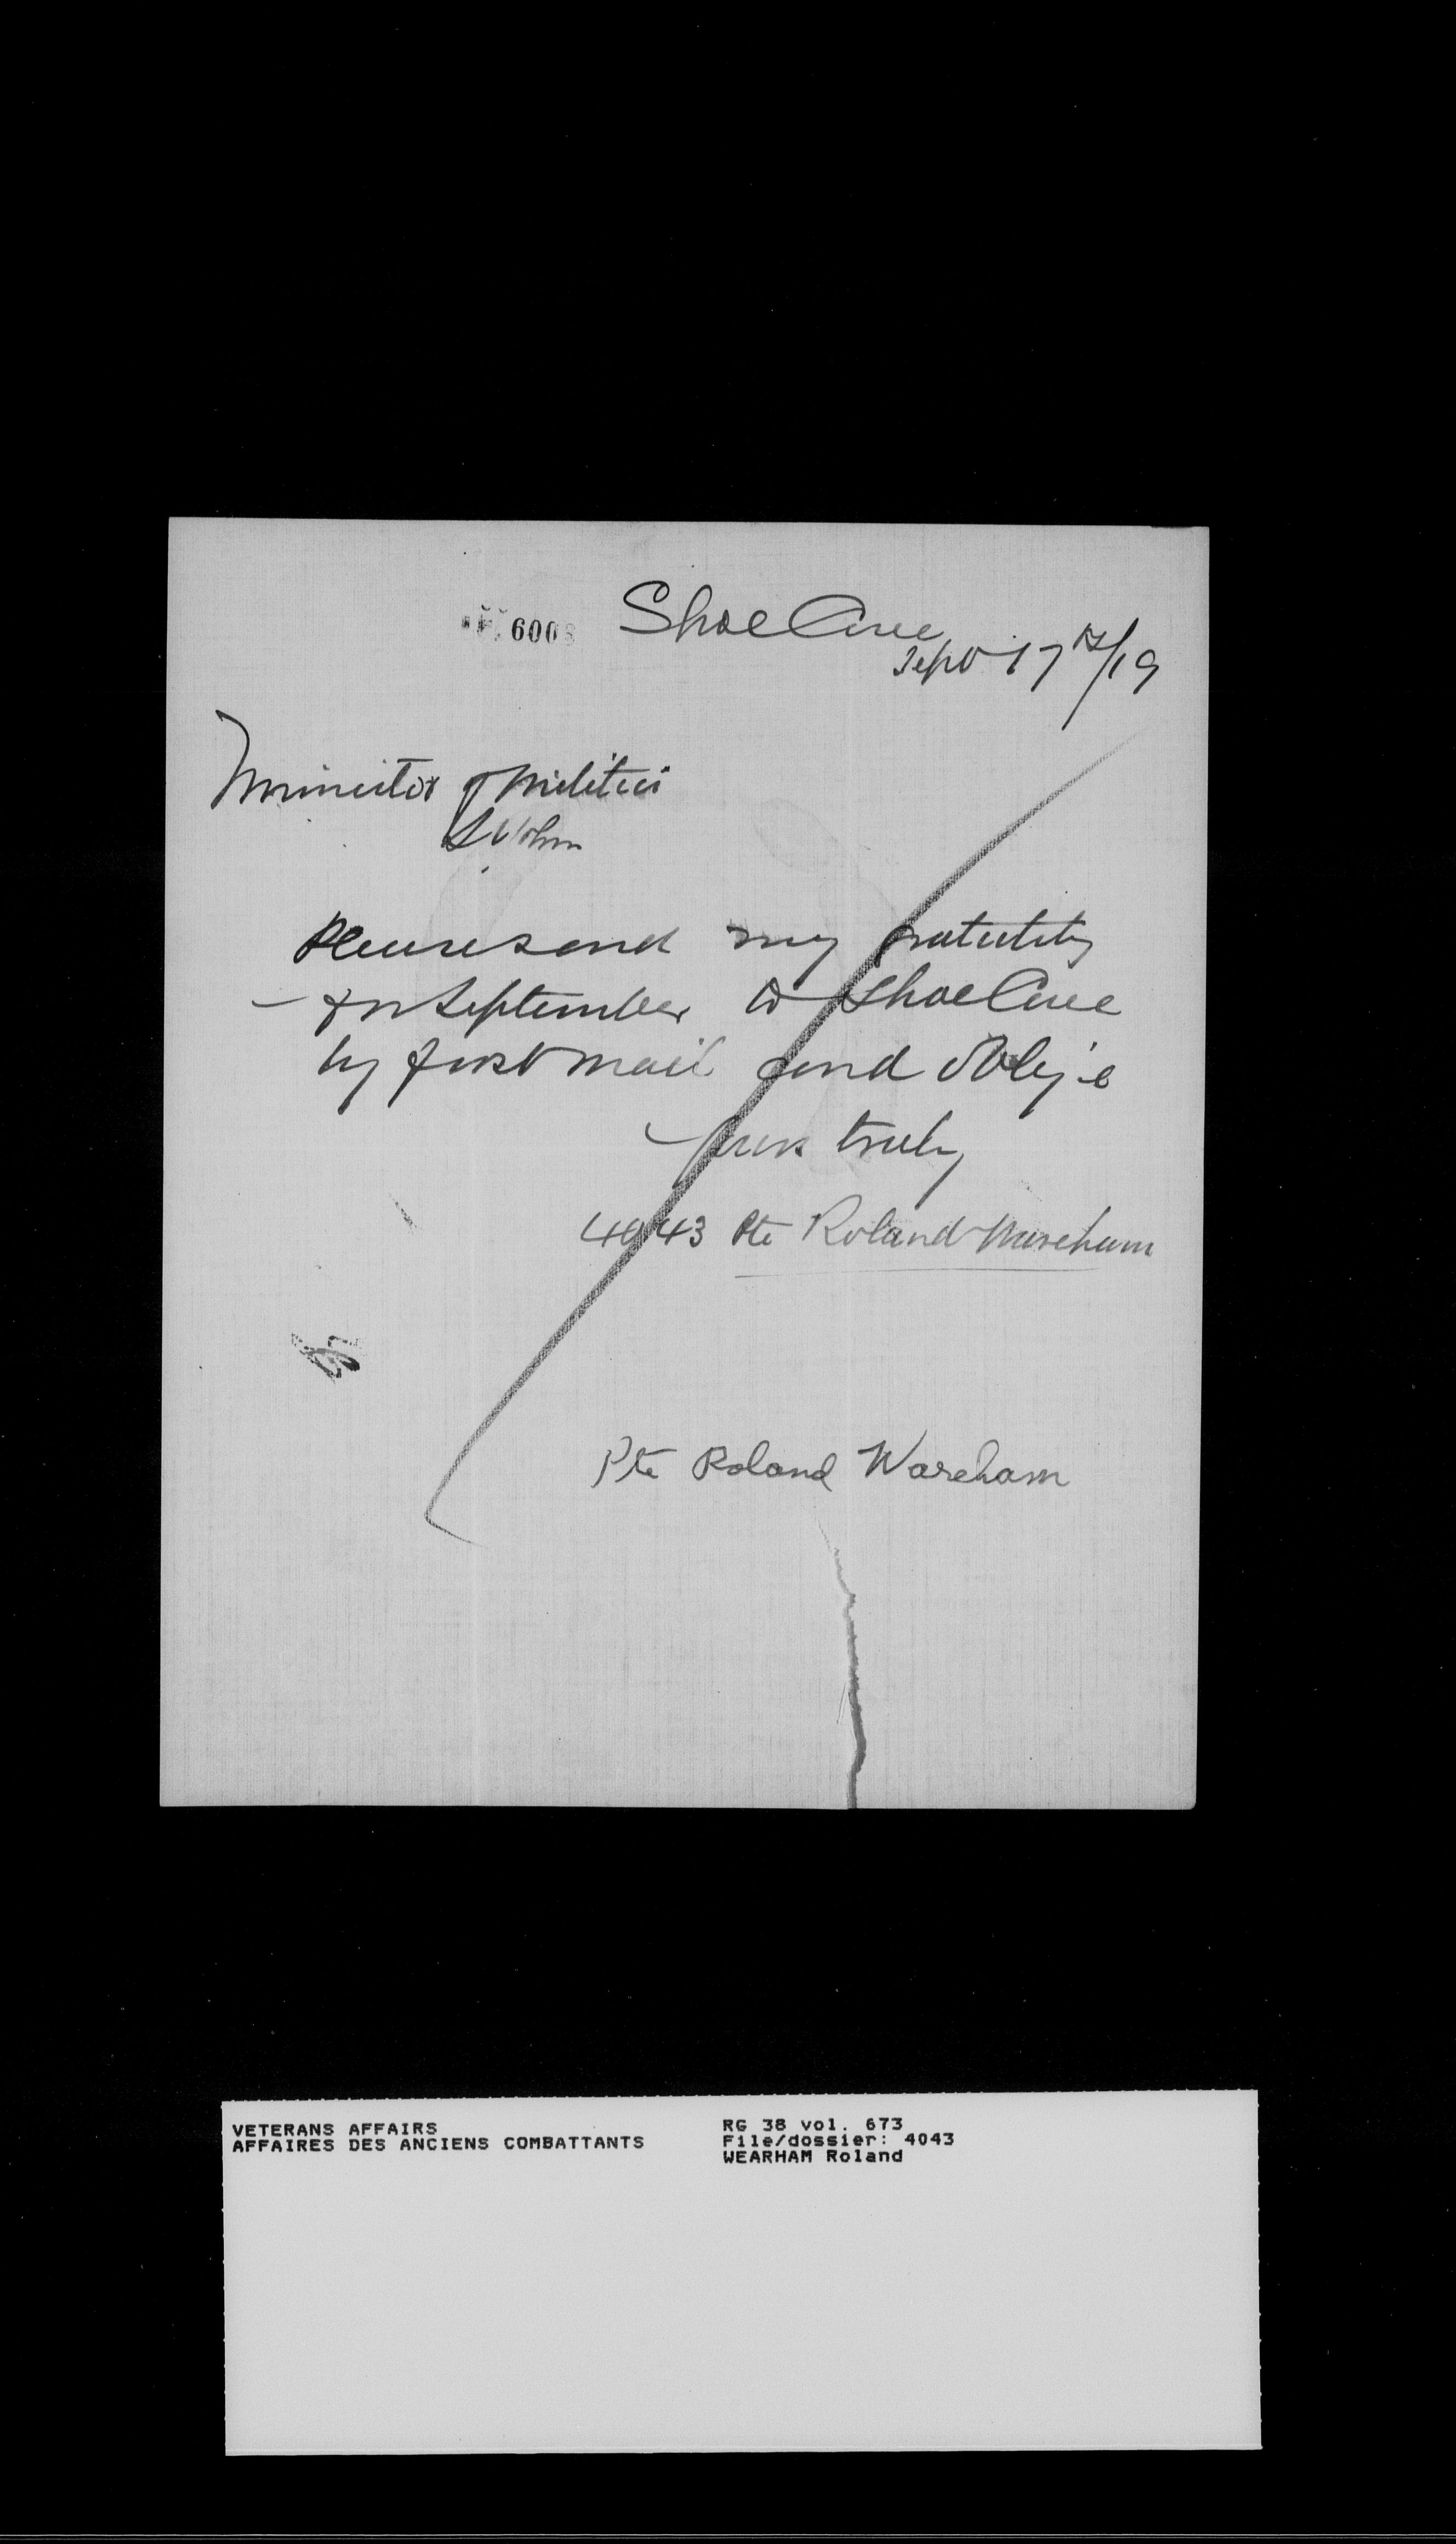 Shoe Cove
6008
Sept 17th/19
Minister of Militia
St John
Please send my gratutity
for September to Shoe Cove
by first mail and Oblige
yours truly
4043 Pte Roland Wareham
Pte Roland Wareham
VETERANS AFFAIRS
AFFAIRES DES ANCIENS COMBATTANTS
RG 38 vol. 673
File/dossier: 4043
WEARHAM Roland